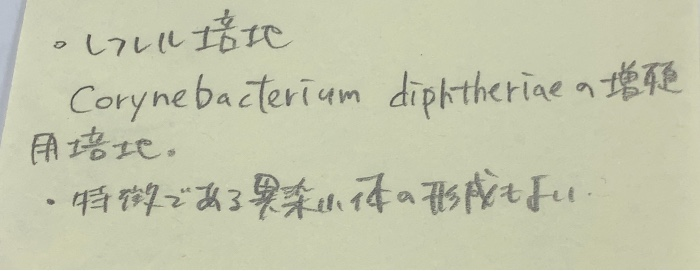 。レフレル培地
Corynebacterium diphtheriaeの増殖
用培地。
・特徴である異染小体の形成もよい.